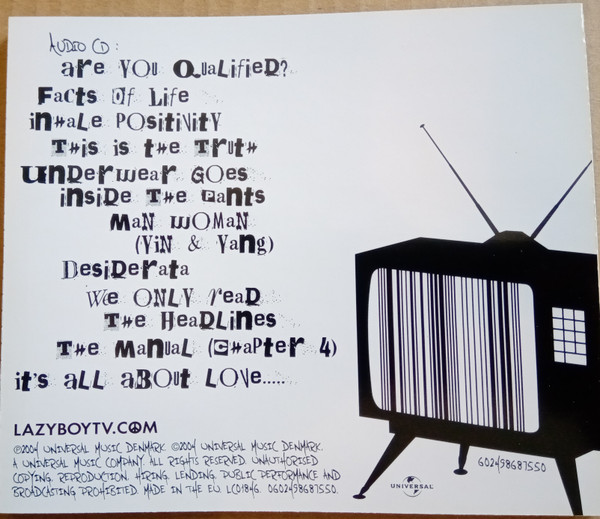 AUDIO CD:
are YOU QuaLiFieD?
Facts Of Life
inHaLe POSitiViTY
THis is tHe TrutH
unDerwear GOes
insiDe THe Pants
MaN WOMaN
(Yin & Yang)
DesiDerata
We ONLY reaD
THe HeaDLines
THe ManuaL (CHaPter 4)
it's aLL aBOut LOVe.....
LAZYBOYTV.COM
©2004 UNIVERSAL MUSIC DENMARK. ©2004 UNIVERSAL MUSIC DENMARK.
A UNIVERSAL MUSIC COMPANY. ALL RIGHTS RESERVED. UNAUTHORISED
COPYING, REPRODUCTION, HIRING, LENDING, PUBLIC PERFORMANCE AND
BROADCASTING PROHIBITED. MADE IN THE EU. LC01846. 0602498687550.
UNIVERSAL
602498687550